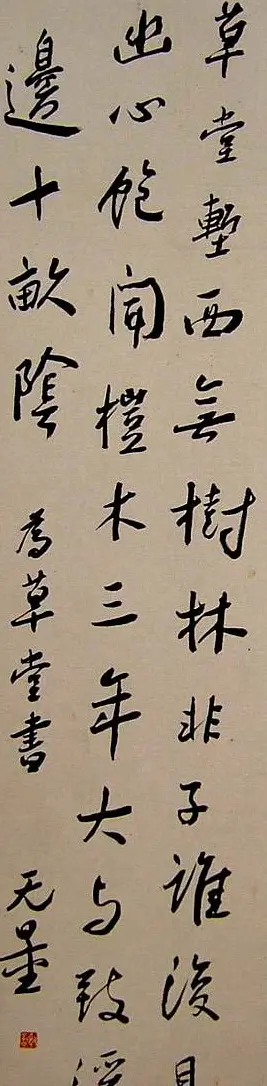 草堂塹西無樹林非子誰復見
幽心飽聞榿木三年大与致溪
邊十畝陰
為草堂書 无量